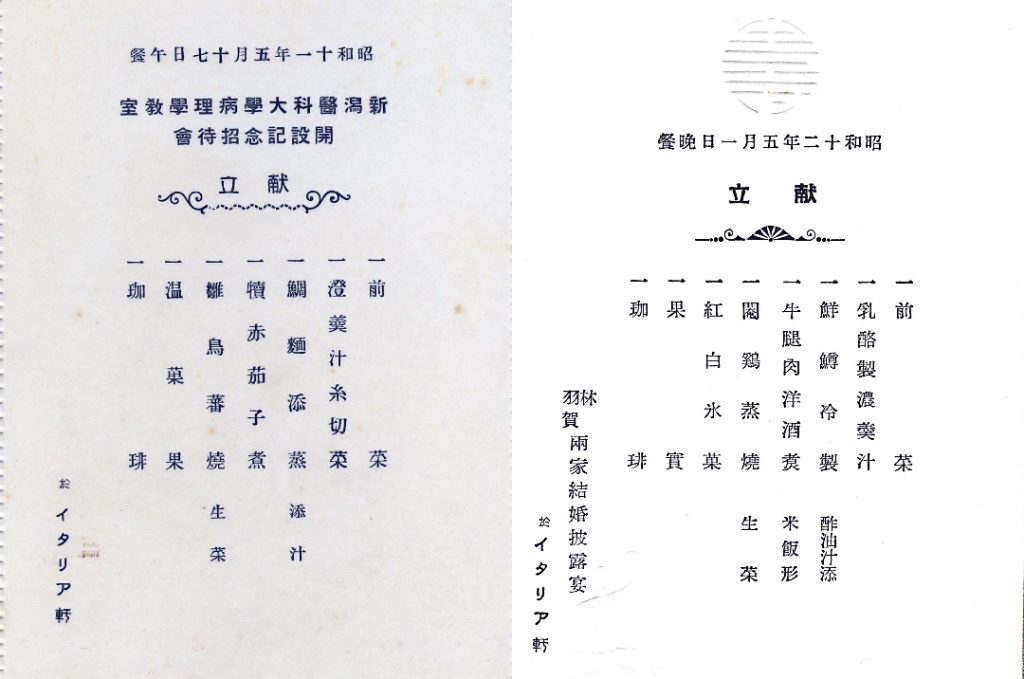 昭和十一年五月十七日午餐
新潟醫科大學病理學教室
開設記念招待會
献立
一前菜
一澄羹汁糸切菜
一鯛麵添蒸 添汁
一犢赤茄子煮
一雛鳥蕃燒 生菜
一温菓果
一珈琲
於イタリア軒
昭和十二年五月一日晩餐
献立
一前菜
一乳酪製濃羹汁
一鮮鱒冷製 酢油汁添
一牛腿肉洋酒煮 米飯形
一閹鶏蒸燒 生菜
一紅白氷菓
一果實
一珈琲
林
羽賀
兩家結婚披露宴
於イタリア軒